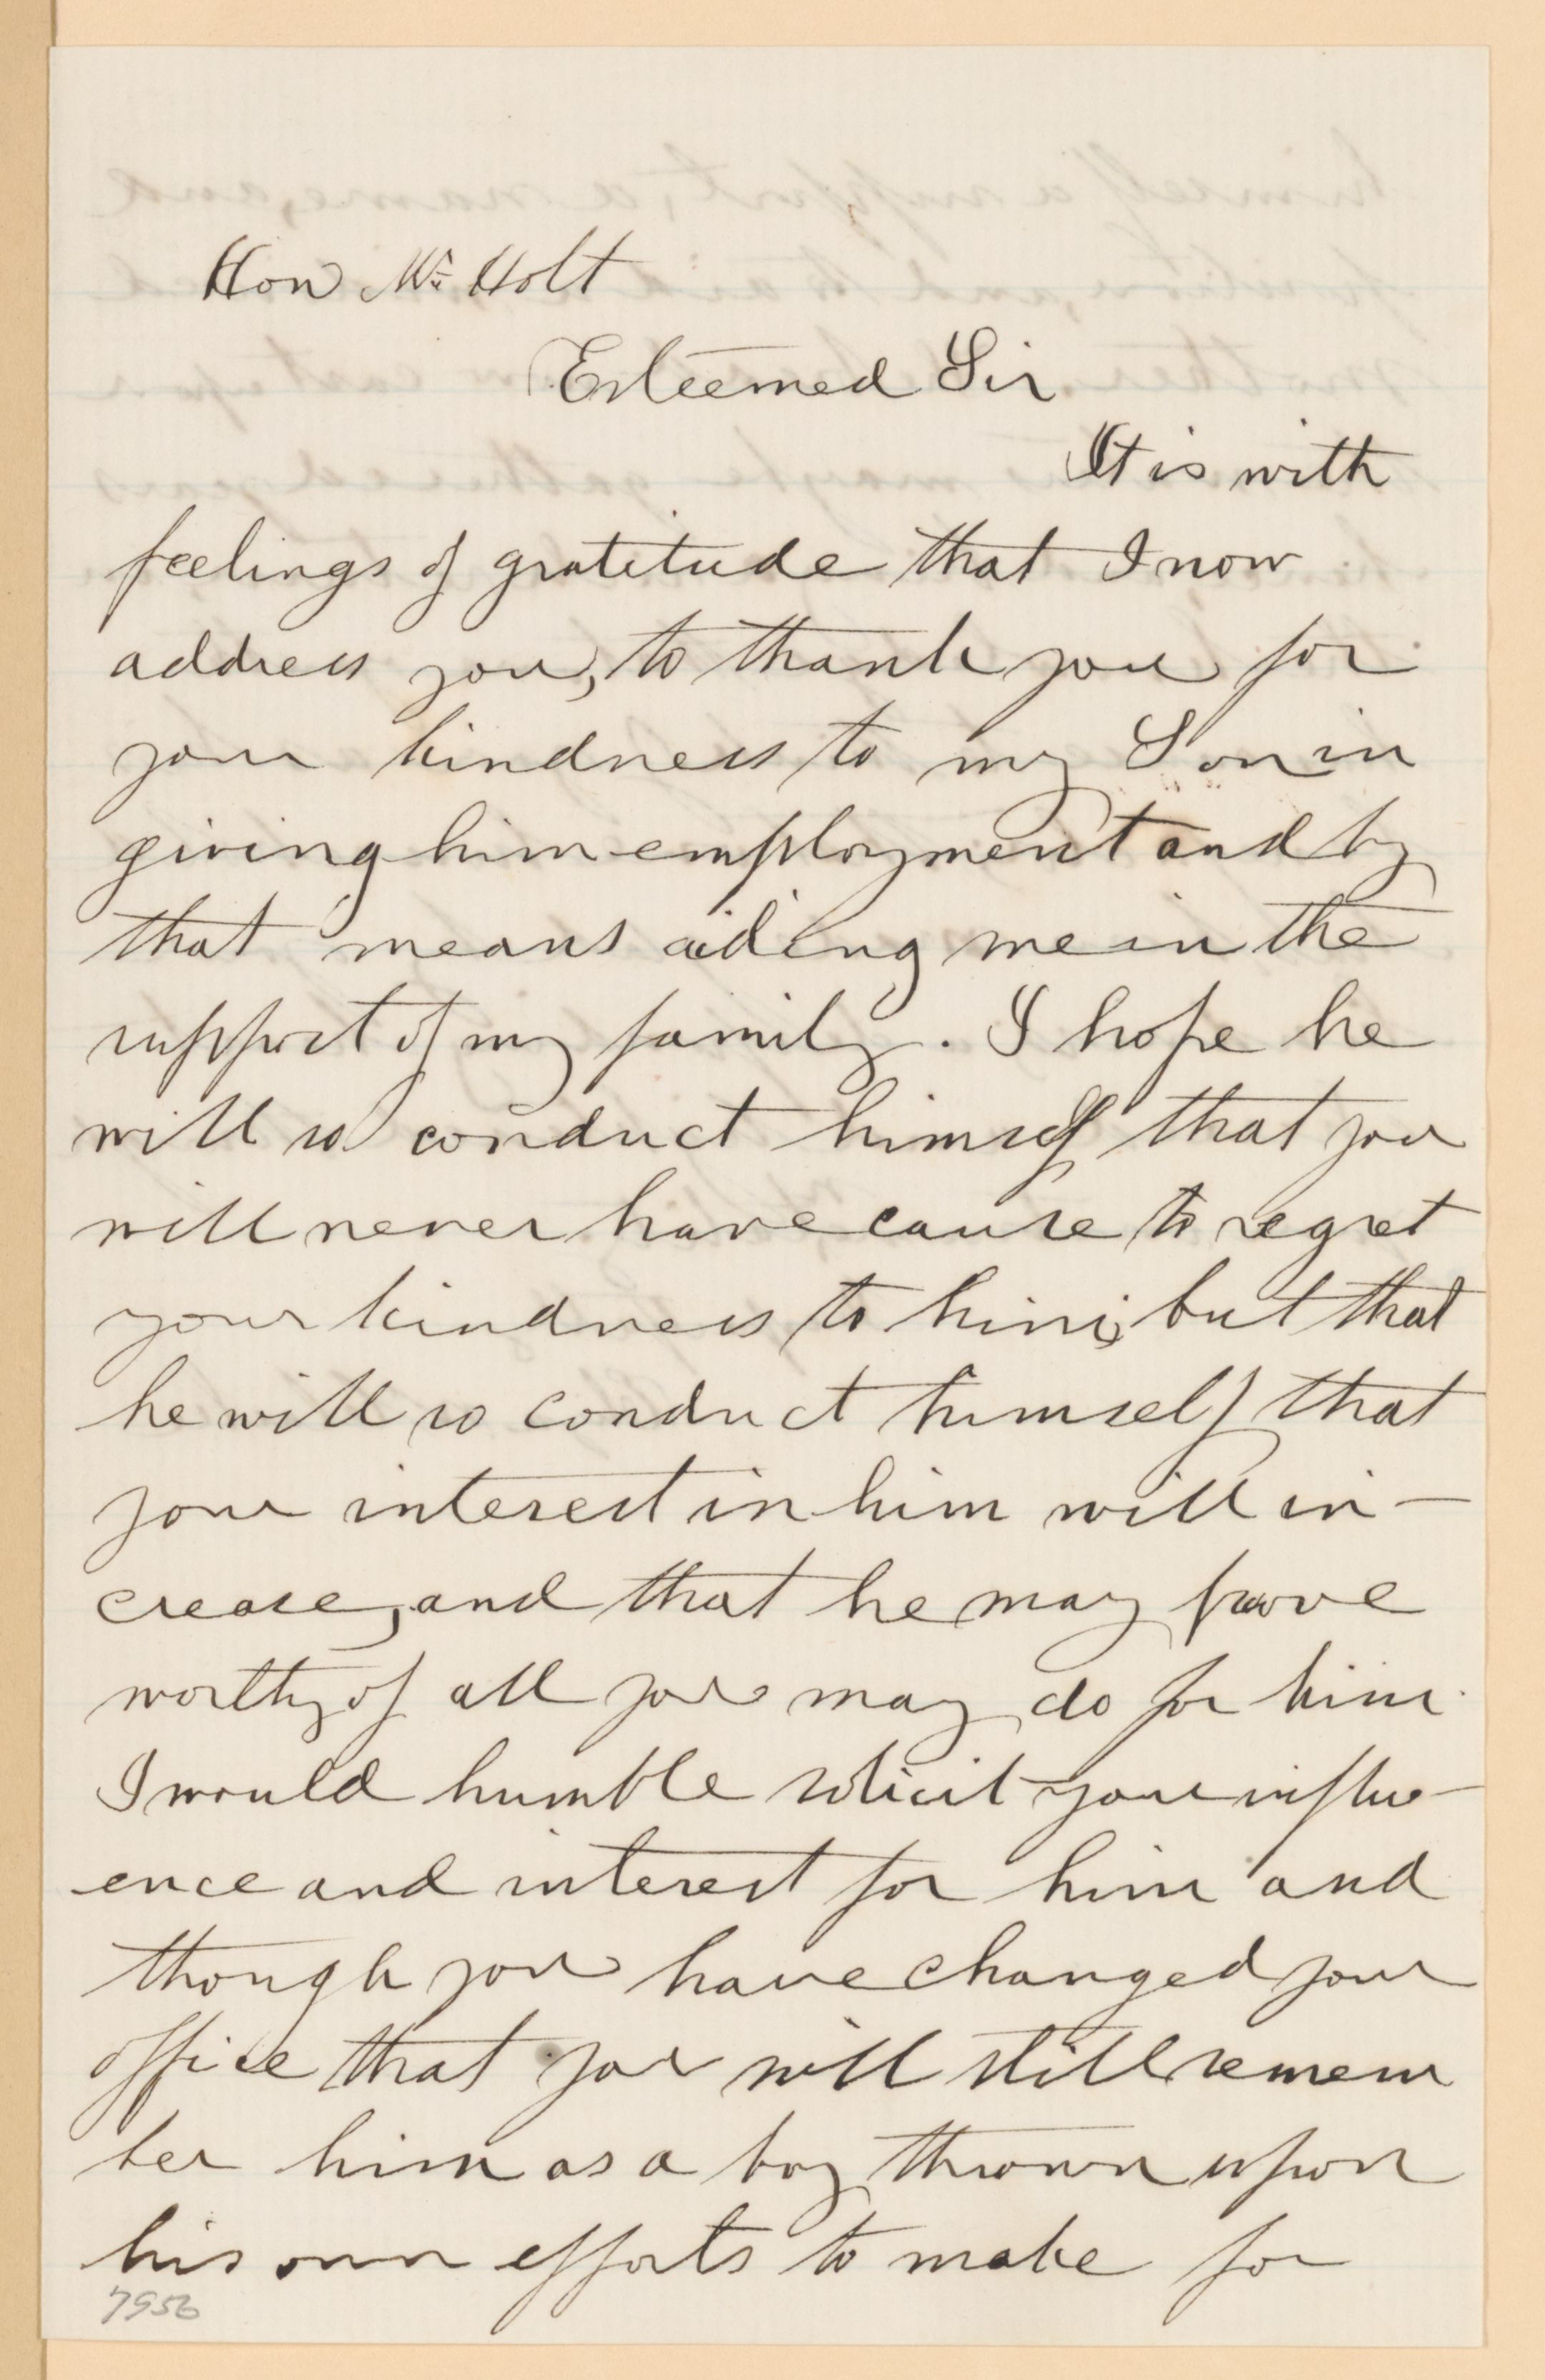 Hon Mr Holt
Esteemed Sir
It is with
feelings of gratitude that I now
address you, to thank you for
your kindness to my Son in
giving him employment and by
that means aiding me in the
support of my family. I hope he
will so conduct himself that you
will never have cause to regret
your kindness to him, but that
he will so conduct himself that
your interest in him will in-
crease, and that he may prove
worthy of all you may do for him.
I would humble solicit your influ-
ence and interest for him and
though you have changed your
office that you will still remem
ber him as a boy thrown upon
his own efforts to make for
7956